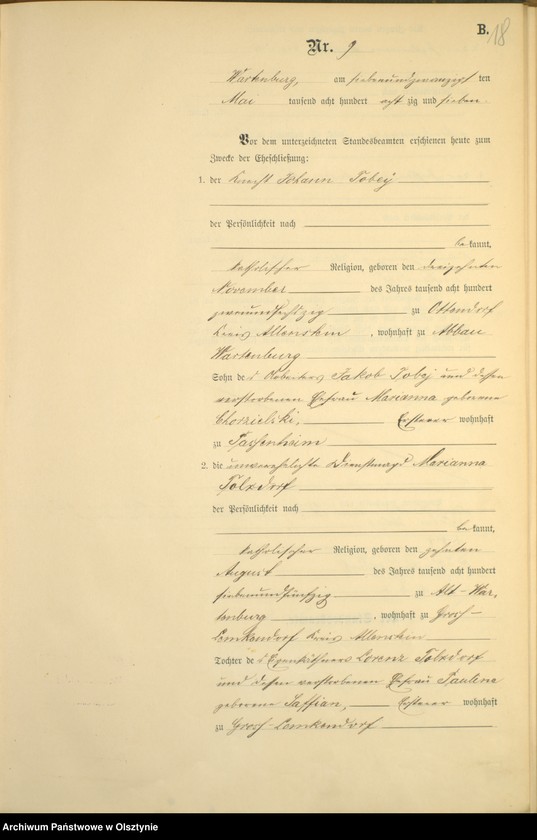 B.
18
Nr. 9
Wartenburg, am siebenundzwanzigsten
Mai tausend acht hundert achtzig und sieben
Vor dem unterzeichneten Standesbeamten erschienen heute zum
Zwecke der Eheschließung:
1. der Knecht Johann Tobej
der Persönlichkeit nach
bekannt,
katholischer Religion, geboren den dreizehnten
November des Jahres tausend acht hundert
zweiundsechszig zu Ottendorf
Kreis Allenstein, wohnhaft zu Abbau
Wartenburg
Sohn des Jakob Tobej und dessen
verstorbenen Ehefrau Marianna geborene
Chorzielski, Ersterer wohnhaft
zu Passenheim
2. die unverehelichte Dienstmagd Marianna
Tolxdorf
der Persönlichkeit nach
bekannt,
katholischer Religion, geboren den zehnten
August des Jahres tausend acht hundert
siebenundfünfzig zu Alt-War,
tenburg, wohnhaft zu Groß-
Lemkendorf Kreis Allenstein
Tochter des Eigenkäthners Lorenz Tolxdorf
und dessen verstorbenen Ehefrau Pauline
geborene Saffian, Ersterer wohnhaft
zu Groß-Lemkendorf
Archiwum Państwowe w Olsztynie